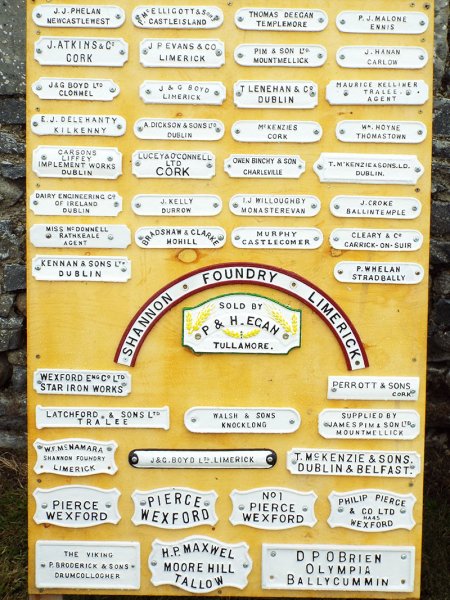 J.J. PHELAN
NEWCASTLEWEST
McELLIGOTT & SONS
CASTLEISLAND
THOMAS DEEGAN
TEMPLEMORE
P.J. MALONE
ENNIS
J. ATKINS & Co
CORK
J P EVANS & CO
LIMERICK
PIM & SON LTD
MOUNTMELLICK
J. HANAN
CARLOW
J&G BOYD LTD
CLONMEL
J & G BOYD
LIMERICK
T LENEHAN & Co
DUBLIN
MAURICE KELLIHER
TRALEE.
AGENT
E.J. DELEHANTY
KILKENNY
A. DICKSON & SONS LTD
DUBLIN
McKENZIES
CORK
WM. HOYNE
THOMASTOWN
CARSONS
LIFFEY
IMPLEMENT WORKS
DUBLIN
LUCEY & O'CONNELL
LTD
CORK
OWEN BINCHY & SON
CHARLEVILLE
T. McKENZIE & SONS. LD.
DUBLIN.
DAIRY ENGINEERING Co
OF IRELAND
DUBLIN
J. KELLY
DURROW
I.J WILLOUGHBY
MONASTEREVAN
J. CROKE
BALLINTEMPLE
MISS McDONNELL
RATHKEALE
AGENT
BRADSHAW & CLARKE
MOHILL
MURPHY
CASTLECOMER
CLEARY & Co
CARRICK-ON-SUIR
KENNAN & SONS LTD
DUBLIN
P. WHELAN
STRADBALLY
SHANNON FOUNDRY LIMERICK
SOLD BY
P & H. EGAN
TULLAMORE.
WEXFORD ENG Co LTD
STAR IRON WORKS
PERROTT & SONS
CORK
LATCHFORD & SONS LTD
TRALEE
WALSH & SONS
KNOCKLONG
SUPPLIED BY
JAMES PIM & SON LTD
MOUNTMELLICK
W.F. McNAMARA
SHANNON FOUNDRY
LIMERICK
J&G. BOYD LTD. LIMERICK
T. McKENZIE & SONS.
DUBLIN & BELFAST.
PIERCE
WEXFORD
PIERCE
WEXFORD
No 1
PIERCE
WEXFORD
PHILIP PIERCE
& CO LTD
HA45
WEXFORD
THE VIKING
P. BRODERICK & SONS
DRUMCOLLOGHER
H.P. MAXWEL
MOORE HILL
TALLOW
D P O BRIEN
OLYMPIA
BALLYCUMMIN